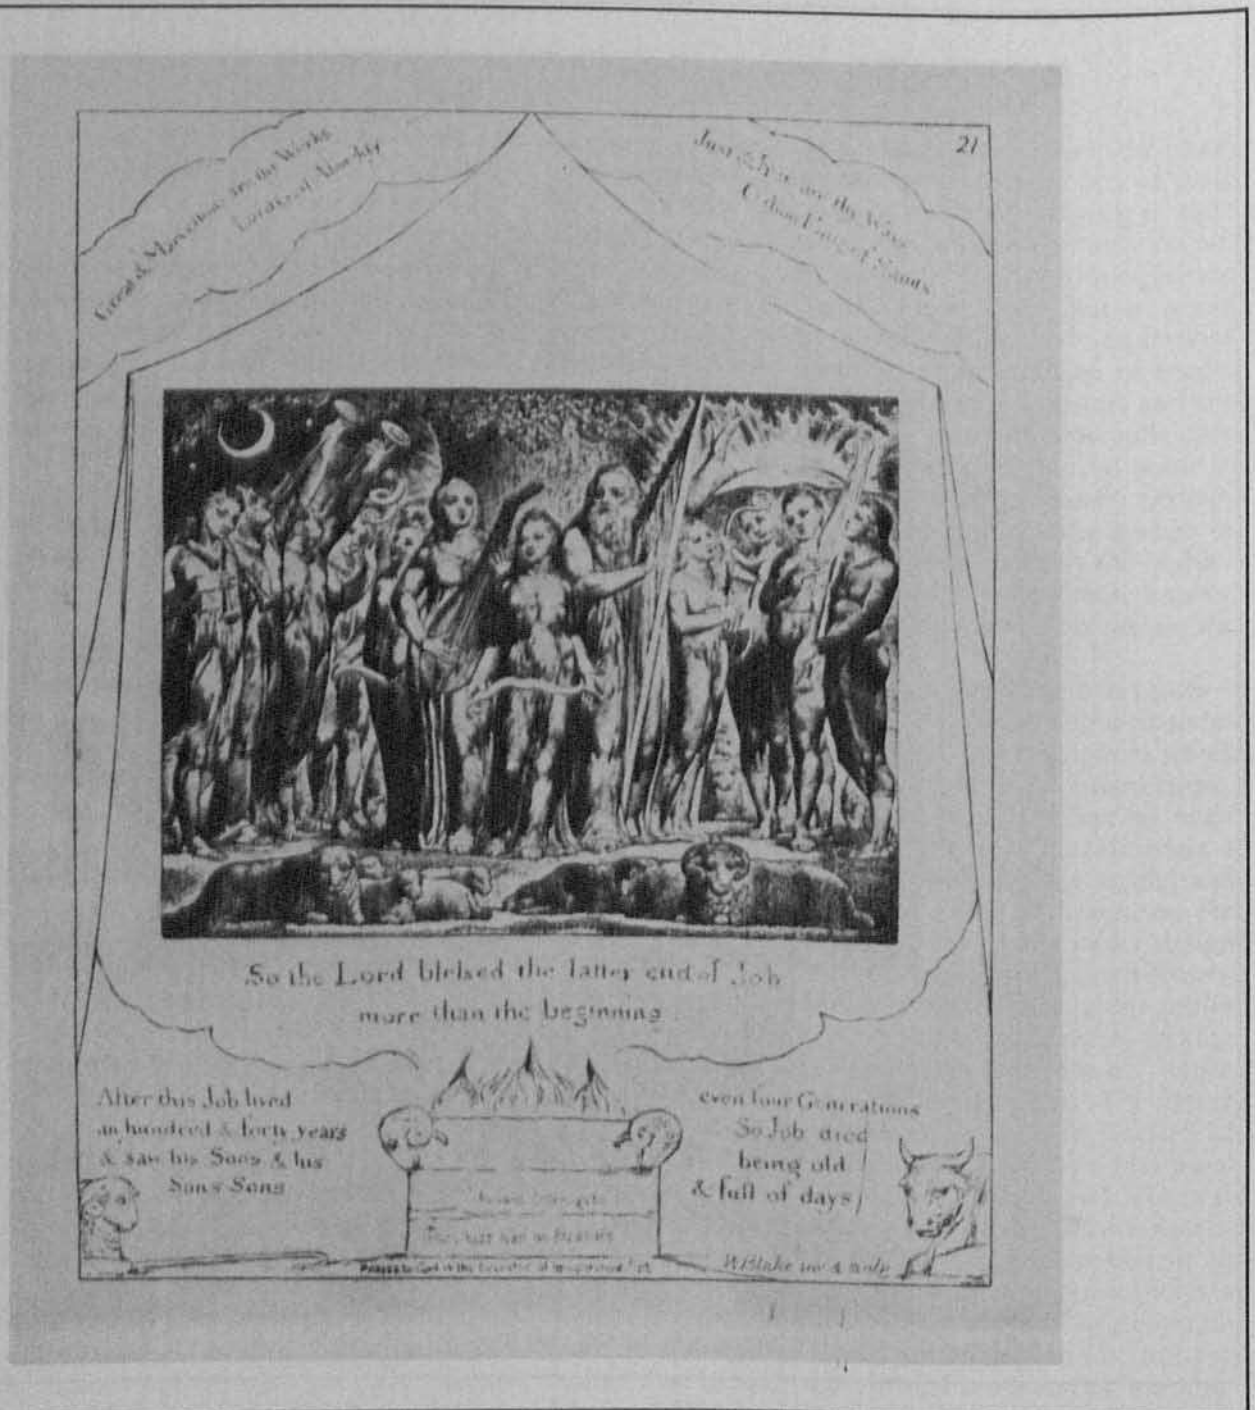 Great & Marvellous are thy Works
Lord God Almighty
Just & True are thy Ways
O thou King of Saints
21
So the Lord blessed the latter end of Job
more than the beginning
After this Job lived
an hundred & forty years
& saw his Sons & his
Sons Sons
even four Generations
So Job died
being old
& full of days
WBlake inv & sculp